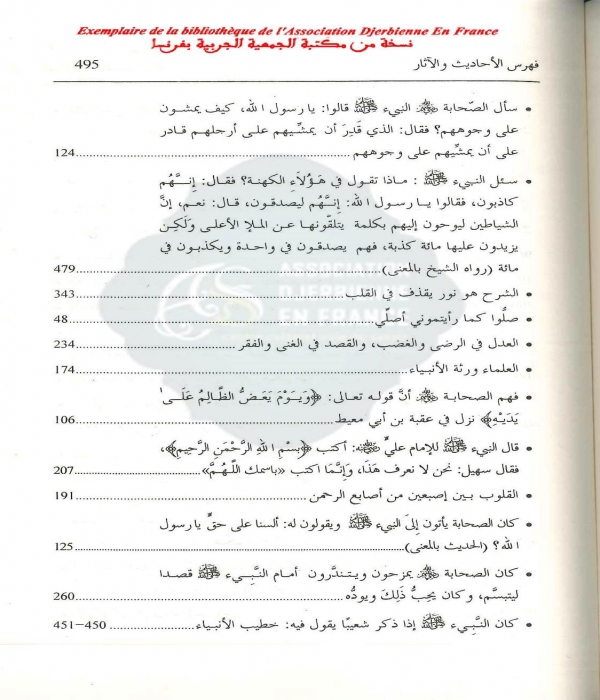 Exemplaire de la bibliothèque de l'Association Djerbienne En France
نسخة من مكتبة الجمعية الجربية بفرنسا
فهرس الأحاديث والآثار 495
• سأل الصّحابة النبيء ﷺ قالوا: يا رسول الله، كيف يمشون
على وجوههم؟ فقال: الذي قَدِرَ أن يمشّيهم على أرجلهم قادر
على أن يمشّيهم على وجوههم 124
• سئل النبيء ﷺ : ماذا تقول في هَؤُلَاءِ الكهنة؟ فقال: إِنَّهُم
كاذبون، فقالوا يا رسول الله: إِنَّهُم ليصدقون، قال: نعم، إِنَّ
الشياطين ليوحون إليهم بكلمة يتلقّونها عن الملإ الأعلى وَلَكِن
يزيدون عليها مائة كذبة، فهم يصدقون في واحدة ويكذبون في
مائة (رواه الشيخ بالمعنى) 479
• الشرح هو نور يقذف في القلب 343
• صلُّوا كما رأيتموني أصلّي 48
• العدل في الرضى والغضب، والقصد في الغنى والفقر 234
• العلماء ورثة الأنبياء 174
• فهم الصحابة ﷺ أنَّ قوله تعالى: ﴿وَيَوْمَ يَعَضُّ الظَّالِمُ عَلَىٰ
يَدَيْهِ﴾ نزل في عقبة بن أبي معيط 106
• قال النبيء ﷺ للإمام عليّ رضي الله عنه: أكتب ﴿بِسْمِ اللهِ الرَّحْمَنِ الرَّحِيمِ﴾،
فقال سهيل: نحن لا نعرف هَذَا، وَإِنَّمَا اكتب «باسمك اللَّهُمَّ» 207
• القلوب بين إصبعين من أصابع الرحمن 191
• كان الصحابة يأتون إِلَى النبيء ﷺ ويقولون له: ألسنا على حقٍّ يا رسول
الله؟ (الحديث بالمعنى) 125
• كان الصحابة ﷺ يمزحون ويتندَّرون أمام النَّبِيء ﷺ قصدا
ليتبسَّم، وكان يحبُّ ذَلِكَ ويودُّه 260
• كان النَّبِيء ﷺ إذا ذكر شعيبًا يقول فيه: خطيب الأنبياء 450-451
ASSOCIATION
DJERBIENNE
EN FRANCE